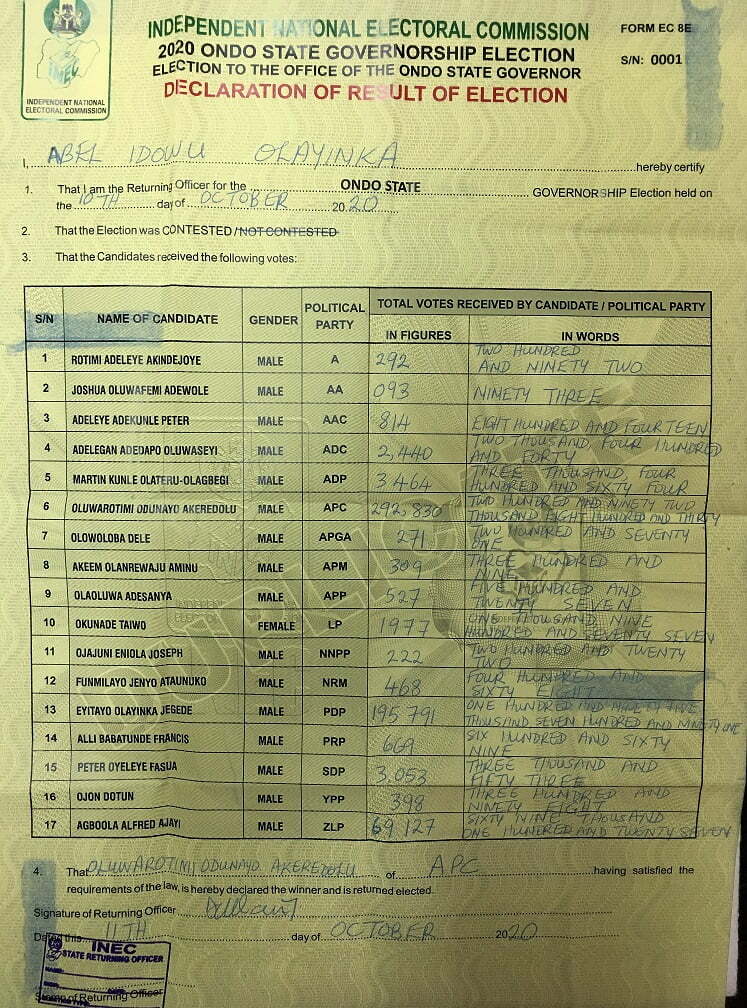 INDEPENDENT NATIONAL ELECTORAL COMMISSION
FORM EC 8E
2020 ONDO STATE GOVERNORSHIP ELECTION
S/N: 0001
ELECTION TO THE OFFICE OF THE ONDO STATE GOVERNOR
DECLARATION OF RESULT OF ELECTION
INEC
INDEPENDENT NATIONAL
ELECTORAL COMMISSION
I, ABEL IDOWU OLAYINKA hereby certify
1. That I am the Returning Officer for the ONDO STATE GOVERNORSHIP Election held on
the 10TH day of OCTOBER 2020
2. That the Election was CONTESTED / NOT CONTESTED
3. That the Candidates received the following votes:
S/N NAME OF CANDIDATE GENDER POLITICAL PARTY TOTAL VOTES RECEIVED BY CANDIDATE / POLITICAL PARTY
IN FIGURES IN WORDS
1 ROTIMI ADELEYE AKINDEJOYE MALE A 292 TWO HUNDRED AND NINETY TWO
2 JOSHUA OLUWAFEMI ADEWOLE MALE AA 093 NINETY THREE
3 ADELEYE ADEKUNLE PETER MALE AAC 814 EIGHT HUNDRED AND FOURTEEN
4 ADELEGAN ADEDAPO OLUWASEYI MALE ADC 2,440 TWO THOUSAND, FOUR HUNDRED AND FORTY
5 MARTIN KUNLE OLATERU-OLAGBEGI MALE ADP 3464 THREE THOUSAND, FOUR HUNDRED AND SIXTY FOUR
6 OLUWAROTIMI ODUNAYO AKEREDOLU MALE APC 292,830 TWO HUNDRED AND NINETY TWO THOUSAND EIGHT HUNDRED AND THIRTY
7 OLOWOLOBA DELE MALE APGA 271 TWO HUNDRED AND SEVENTY ONE
8 AKEEM OLANREWAJU AMINU MALE APM 309 THREE HUNDRED AND NINE
9 OLAOLUWA ADESANYA MALE APP 527 FIVE HUNDRED AND TWENTY SEVEN
10 OKUNADE TAIWO FEMALE LP 1977 ONE THOUSAND NINE HUNDRED AND SEVENTY SEVEN
11 OJAJUNI ENIOLA JOSEPH MALE NNPP 222 TWO HUNDRED AND TWENTY TWO
12 FUNMILAYO JENYO ATAUNUKO MALE NRM 468 FOUR HUNDRED AND SIXTY EIGHT
13 EYITAYO OLAYINKA JEGEDE MALE PDP 195 791 ONE HUNDRED AND NINETY FIVE THOUSAND SEVEN HUNDRED AND NINETY ONE
14 ALLI BABATUNDE FRANCIS MALE PRP 669 SIX HUNDRED AND SIXTY NINE
15 PETER OYELEYE FASUA MALE SDP 3,053 THREE THOUSAND AND FIFTY THREE
16 OJON DOTUN MALE YPP 398 THREE HUNDRED AND NINETY EIGHT
17 AGBOOLA ALFRED AJAYI MALE ZLP 69 127 SIXTY NINE THOUSAND ONE HUNDRED AND TWENTY SEVEN
4. That OLUWAROTIMI ODUNAYO AKEREDOLU of APC having satisfied the
requirements of the law, is hereby declared the winner and is returned elected.
Signature of Returning Officer
Dated this 11TH day of OCTOBER 2020
INEC
STATE RETURNING OFFICER
NAME:
Stamp of Returning Officer